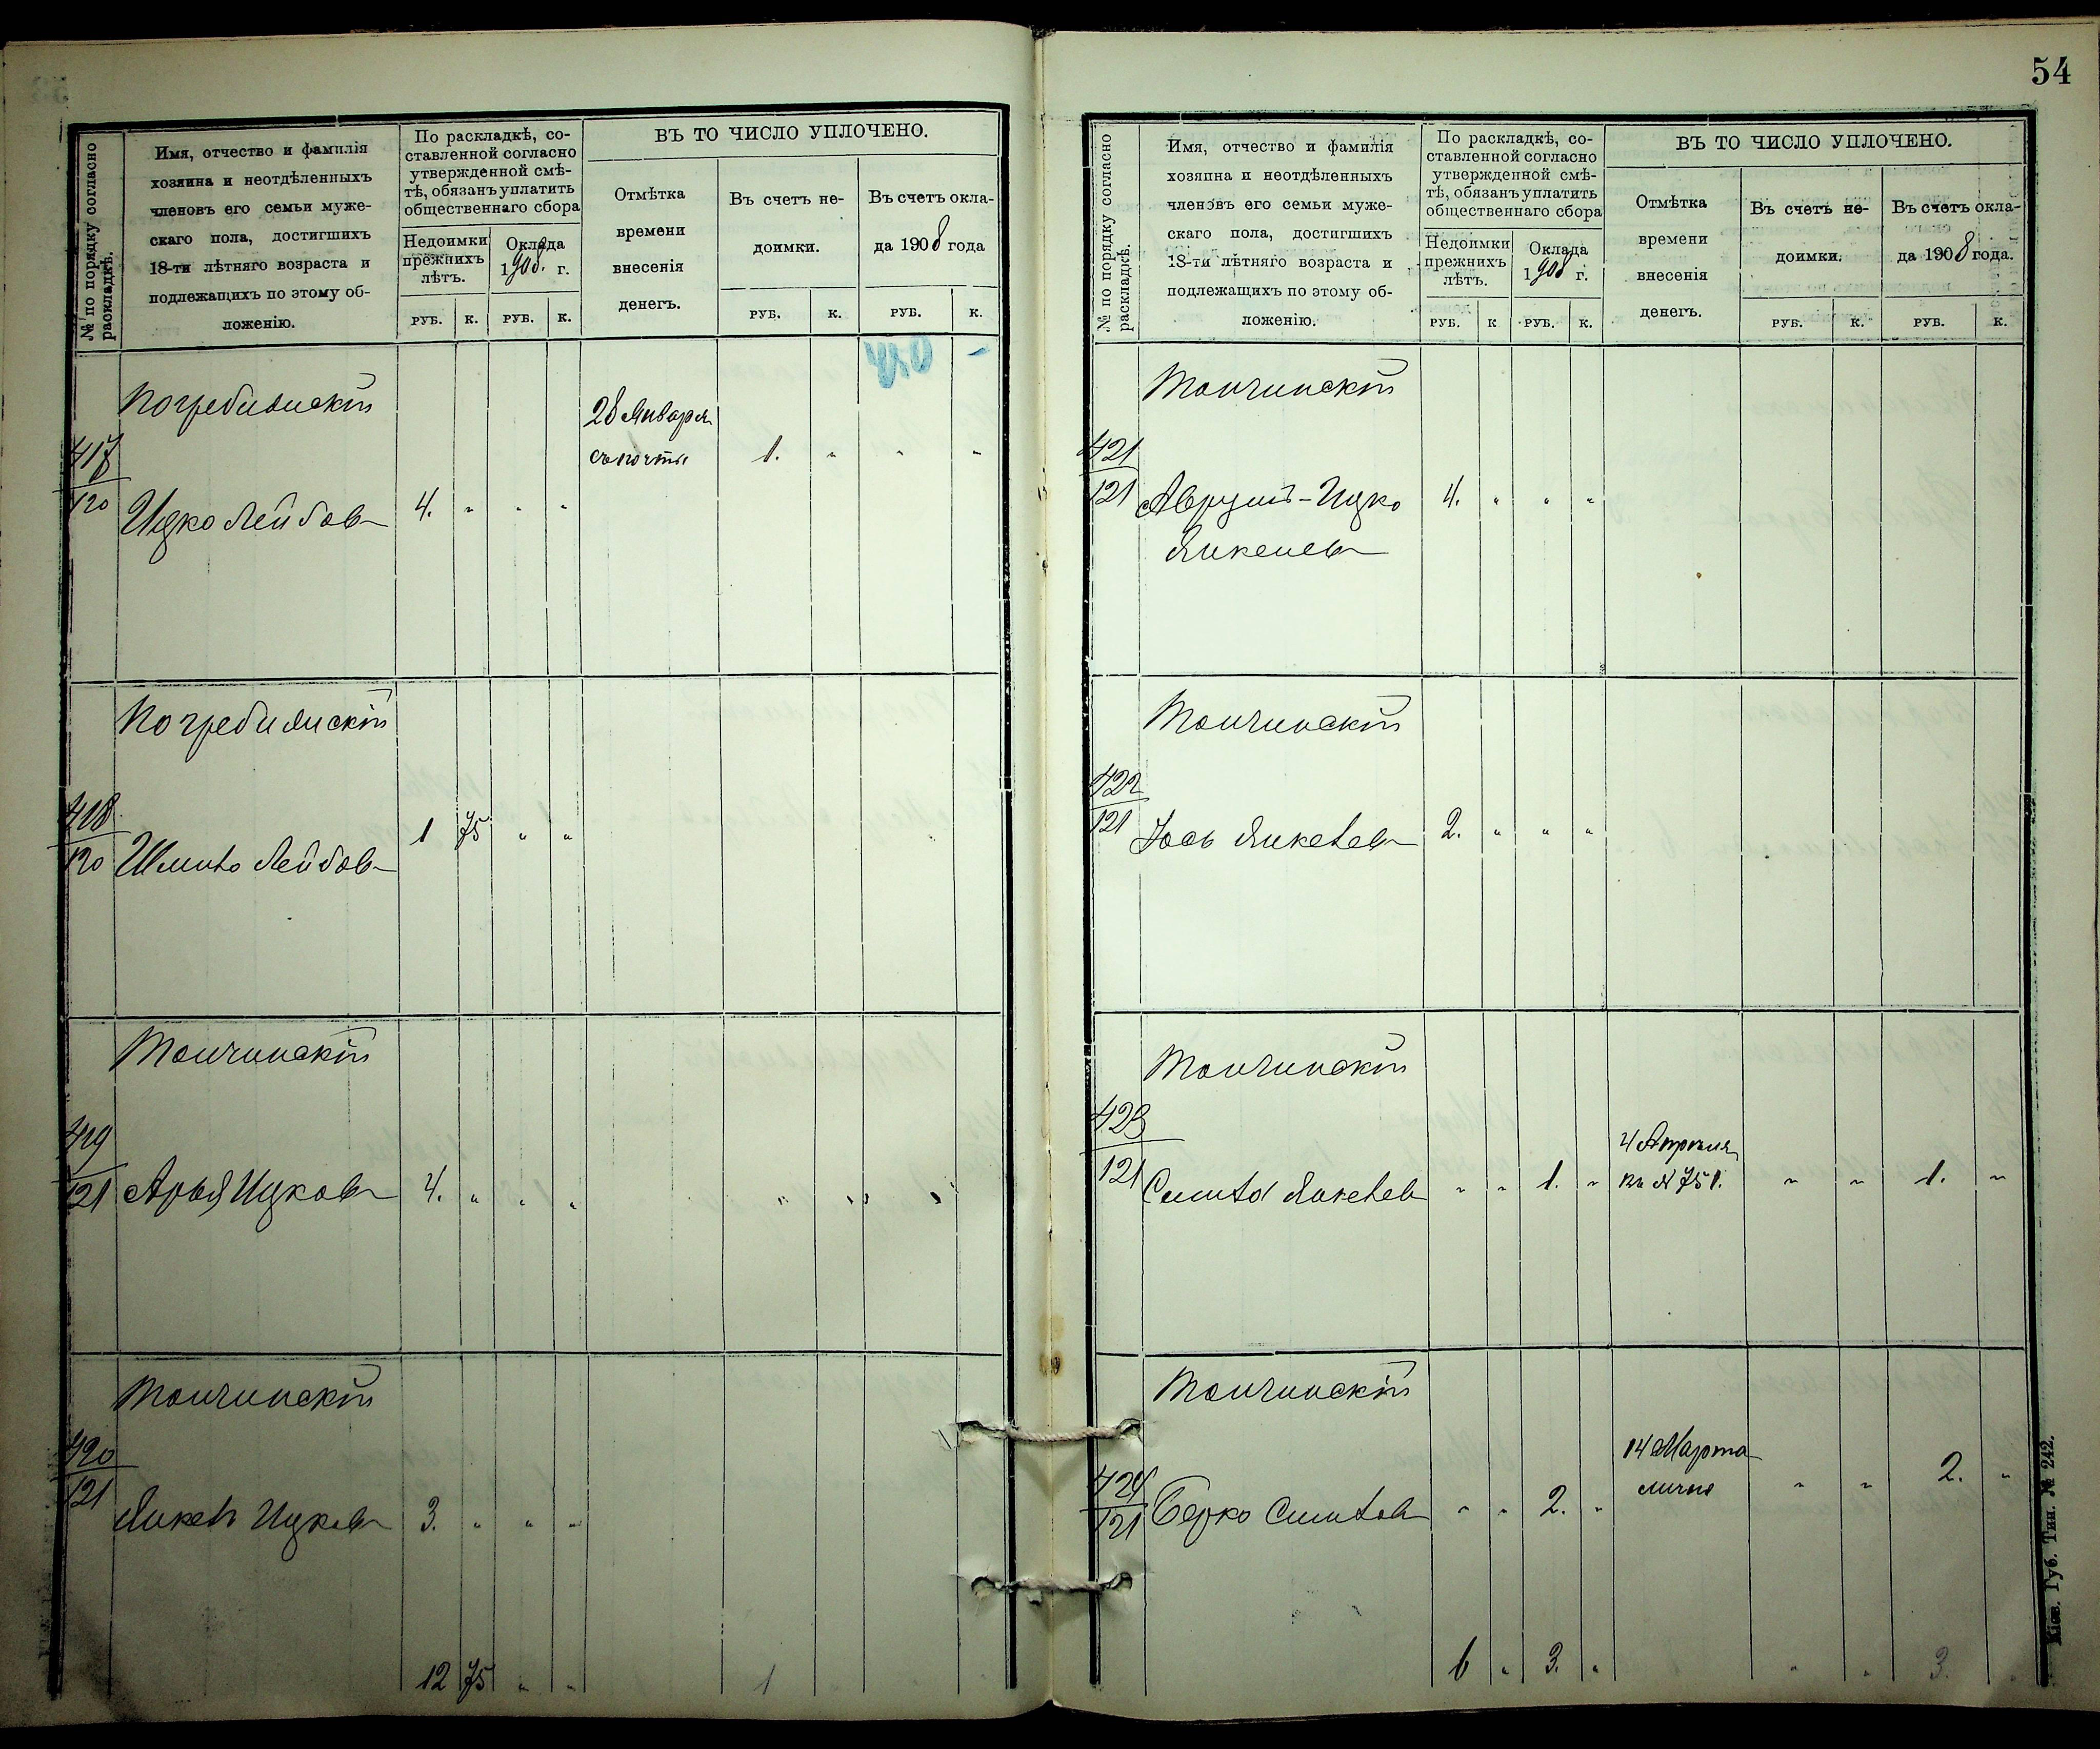 54
№ по порядку согласно раскладкѣ.
Имя, отчество и фамилія
хозяина и неотдѣленныхъ
членовъ его семьи муже-
скаго пола, достигшихъ
18-ти лѣтняго возраста и
подлежащихъ по этому об-
ложенію.
По раскладкѣ, со-
ставленной согласно
утвержденной смѣ-
тѣ, обязанъ уплатить
общественнаго сбора
Недоимки
прежнихъ
лѣтъ.
Оклада
1908 г.
ВЪ ТО ЧИСЛО УПЛОЧЕНО.
Отмѣтка
времени
внесенія
денегъ.
Въ счетъ не-
доимки.
Въ счетъ окла-
да 1908 года
РУБ. К. РУБ. К. РУБ. К. РУБ. К.
Погребинскій
417
120
Ицко Лейбовъ 4. " " "
28 Января
съ почты 1. " " "
Погребинскій
418
120
Шмило Лейбовъ 1 75 " "
Тончинскій
419
121
Арья Ицковъ 4. " " "
Тончинскій
420
121
Янкель Ицковъ 3. " " "
12 75 " " 1
№ по порядку согласно раскладкѣ.
Имя, отчество и фамилія
хозяина и неотдѣленныхъ
членовъ его семьи муже-
скаго пола, достигшихъ
18-ти лѣтняго возраста и
подлежащихъ по этому об-
ложенію.
По раскладкѣ, со-
ставленной согласно
утвержденной смѣ-
тѣ, обязанъ уплатить
общественнаго сбора
Недоимки
прежнихъ
лѣтъ.
Оклада
1908 г.
ВЪ ТО ЧИСЛО УПЛОЧЕНО.
Отмѣтка
времени
внесенія
денегъ.
Въ счетъ не-
доимки.
Въ счетъ окла-
да 1908 года.
РУБ. К РУБ. К. РУБ. К. РУБ. К.
Тончинскій
421
121
Аврумъ-Ицко 4. " " "
Янкелевъ
Тончинскій
422
121
Іось Янкелевъ 2. " " "
Тончинскій
423
121
Симха Янкелевъ " " 1. "
4 Апрѣля
кв № 751. " " 1. "
Тончинскій
424
121
Берко Симховъ " " 2. "
14 Марта
лично " " 2. "
6 " 3. " " " 3.
Кіев. Губ. Тип. № 242.